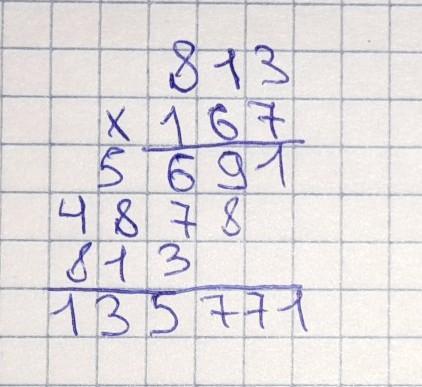 813
x 167
5 691
4 8 7 8
8 1 3
135771